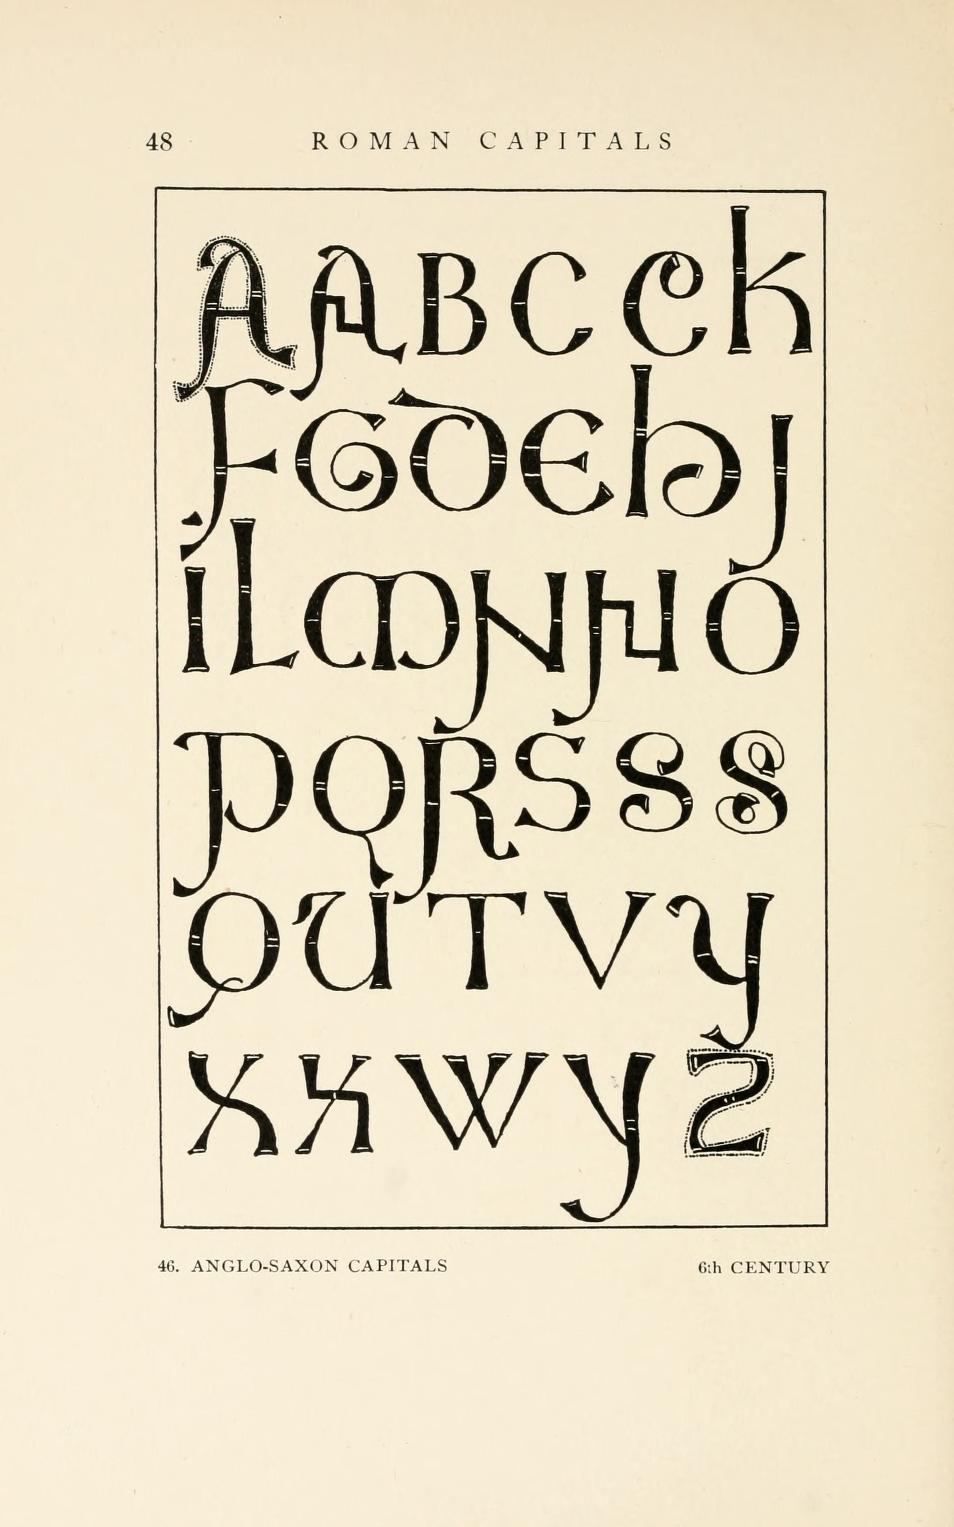 48 ROMAN CAPITALS
AABCCK
FGDEHJ
ILMNNO
PQRSSS
QUTVY
XXWYZ
46. ANGLO-SAXON CAPITALS 6th CENTURY